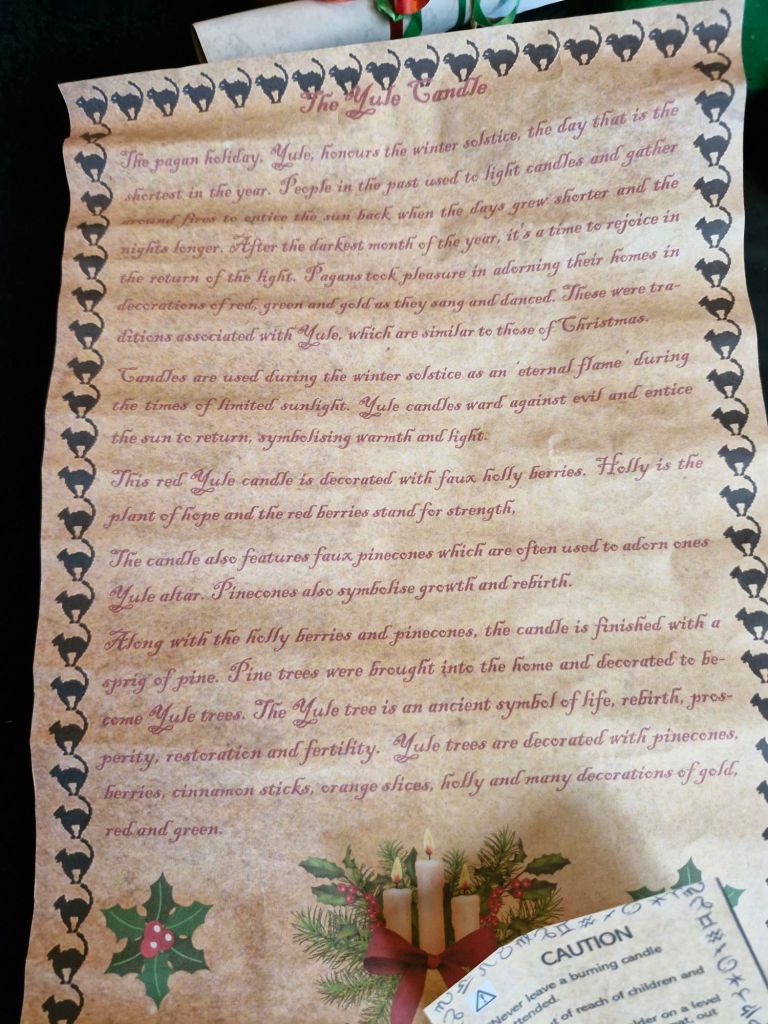 The Yule Candle
The pagan holiday, Yule, honours the winter solstice, the day that is the
shortest in the year. People in the past used to light candles and gather
around fires to entice the sun back when the days grew shorter and the
nights longer. After the darkest month of the year, it's a time to rejoice in
the return of the light. Pagans took pleasure in adorning their homes in
decorations of red, green and gold as they sang and danced. These were tra-
ditions associated with Yule, which are similar to those of Christmas.
Candles are used during the winter solstice as an 'eternal flame' during
the times of limited sunlight. Yule candles ward against evil and entice
the sun to return, symbolising warmth and light.
This red Yule candle is decorated with faux holly berries. Holly is the
plant of hope and the red berries stand for strength,
The candle also features faux pinecones which are often used to adorn ones
Yule altar. Pinecones also symbolise growth and rebirth.
Along with the holly berries and pinecones, the candle is finished with a
sprig of pine. Pine trees were brought into the home and decorated to be-
come Yule trees. The Yule tree is an ancient symbol of life, rebirth, pros-
perity, restoration and fertility. Yule trees are decorated with pinecones,
berries, cinnamon sticks, orange slices, holly and many decorations of gold,
red and green.
CAUTION
Never leave a burning candle
of reach of children and
on a level
out